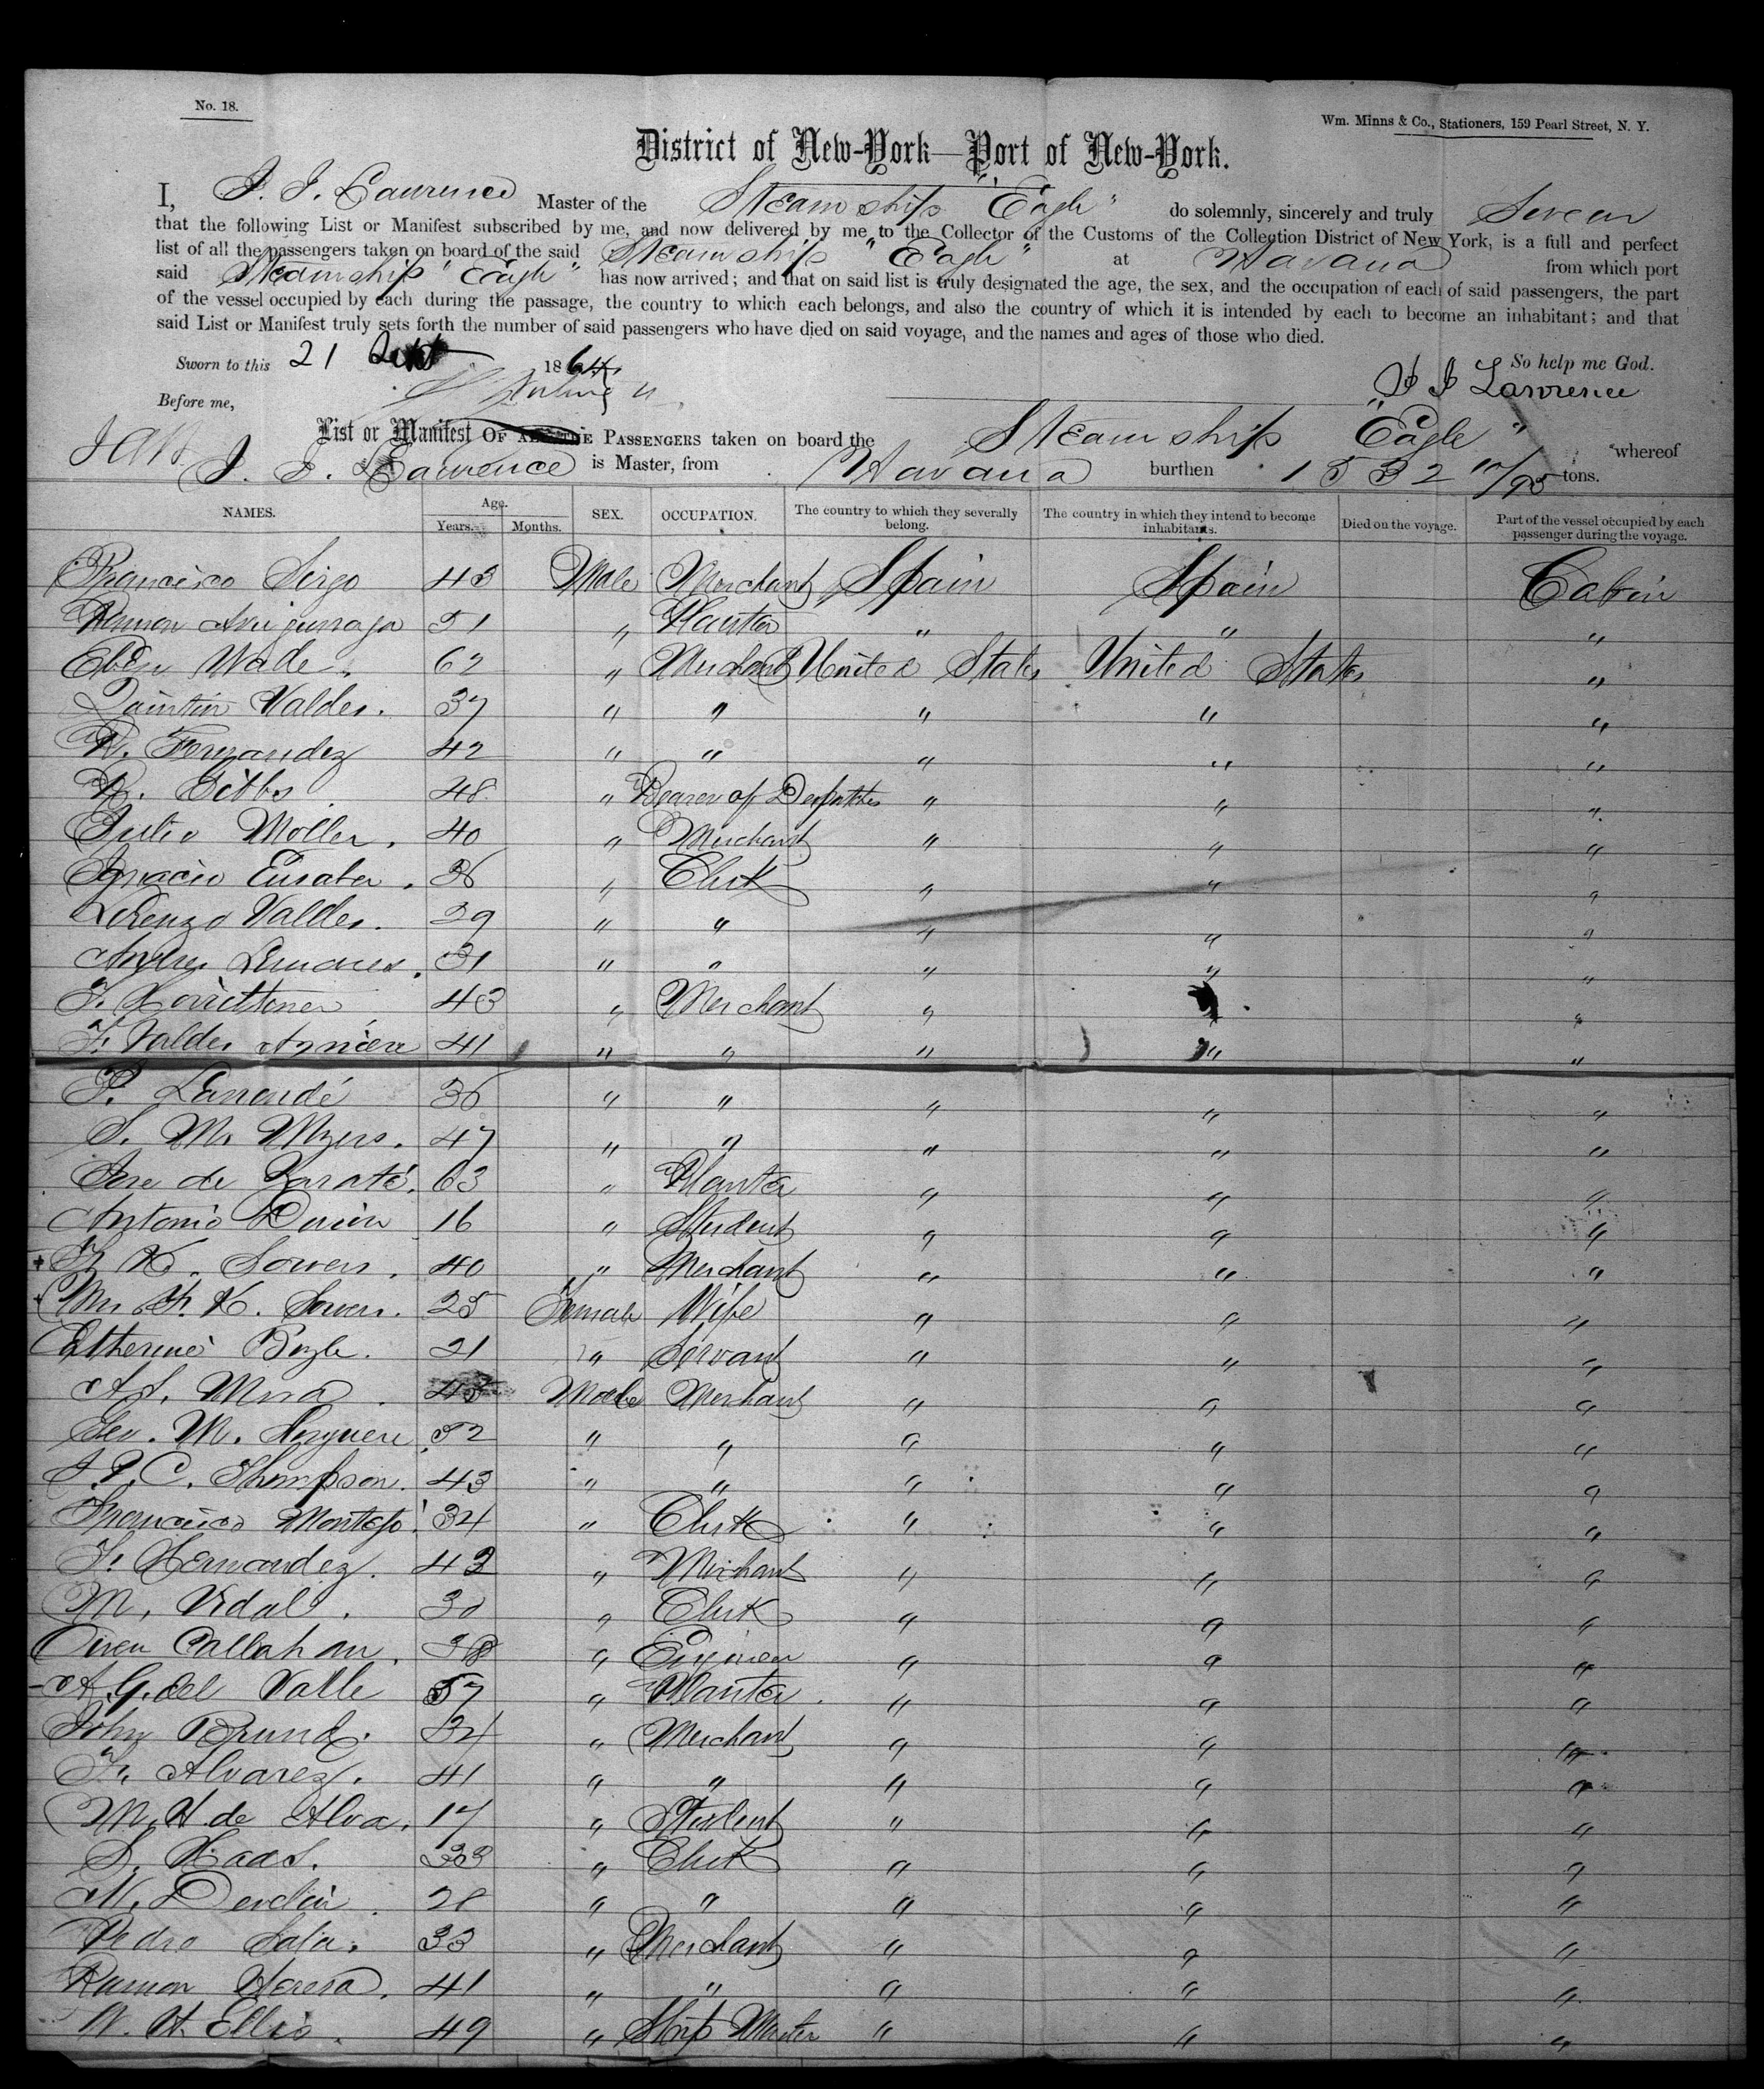 No. 18.
Wm. Minns & Co., Stationers, 159 Pearl Street, N. Y.
District of New-York—Port of New-York.
I, J. J. Lawrence Master of the Steam ship "Eagle" do solemnly, sincerely and truly Swear
that the following List or Manifest subscribed by me, and now delivered by me to the Collector of the Customs of the Collection District of New York, is a full and perfect
list of all the passengers taken on board of the said Steam ship "Eagle" at Havana from which port
said Steam ship "Eagle" has now arrived; and that on said list is truly designated the age, the sex, and the occupation of each of said passengers, the part
of the vessel occupied by each during the passage, the country to which each belongs, and also the country of which it is intended by each to become an inhabitant; and that
said List or Manifest truly sets forth the number of said passengers who have died on said voyage, and the names and ages of those who died.
Sworn to this 21 1864 So help me God.
Before me, J J Lawrence
List or Manifest OF ALL THE PASSENGERS taken on board the Steam ship "Eagle" whereof
J. J. Lawrence is Master, from Havana burthen 1532 10/95 tons.
NAMES. Age. Years. Months. SEX. OCCUPATION. The country to which they severally belong. The country in which they intend to become inhabitants. Died on the voyage. Part of the vessel occupied by each passenger during the voyage.
Francisco Sirgo 43 Male Merchant Spain Spain Cabin
Ramon 51 " Planter " " "
Eben Wade 62 " Merchant United States United States "
Quintin Valdes. 37 " " " " "
R. Fernandez 42 " " " " "
R. Gibbs 48 " Bearer of Despatches " " "
Julio Moller. 40 " Merchant " " "
Ignacio 36 " Clerk " " "
Lorenzo Valdes. 29 " " " " "
31 " " " " "
43 " Merchant " " "
F. Valdes 41 " " " " "
P. 36 " " " " "
S. M. Myers. 47 " " " " "
Jose de Zarate. 63 " Planter " " "
Antonio 16 " Student " " "
F. K. Sowers. 40 " Merchant " " "
Mrs F. K. Sowers. 25 Female Wife " " "
Catherine Boyle. 21 " Servant " " "
A. S. 45 Male Merchant " " "
M. 32 " " " " "
J. P. C. Thompson. 43 " " " " "
Francisco Montejo 34 " Clerk " " "
F. Hernandez. 42 " Merchant " " "
M. Vidal. 30 " Clerk " " "
Owen Callahan. 38 " Engineer " " "
A. G. del Valle 57 " Planter " " "
John 34 " Merchant " " "
F. Alvarez. 41 " " " " "
M. H. de Alva. 17 " Student " " "
S. Haas. 33 " Clerk " " "
N. 28 " " " " "
Pedro Sala. 33 " Merchant " " "
Ramon 41 " " " " "
W. H. Ellis. 49 " Ship Master " " "